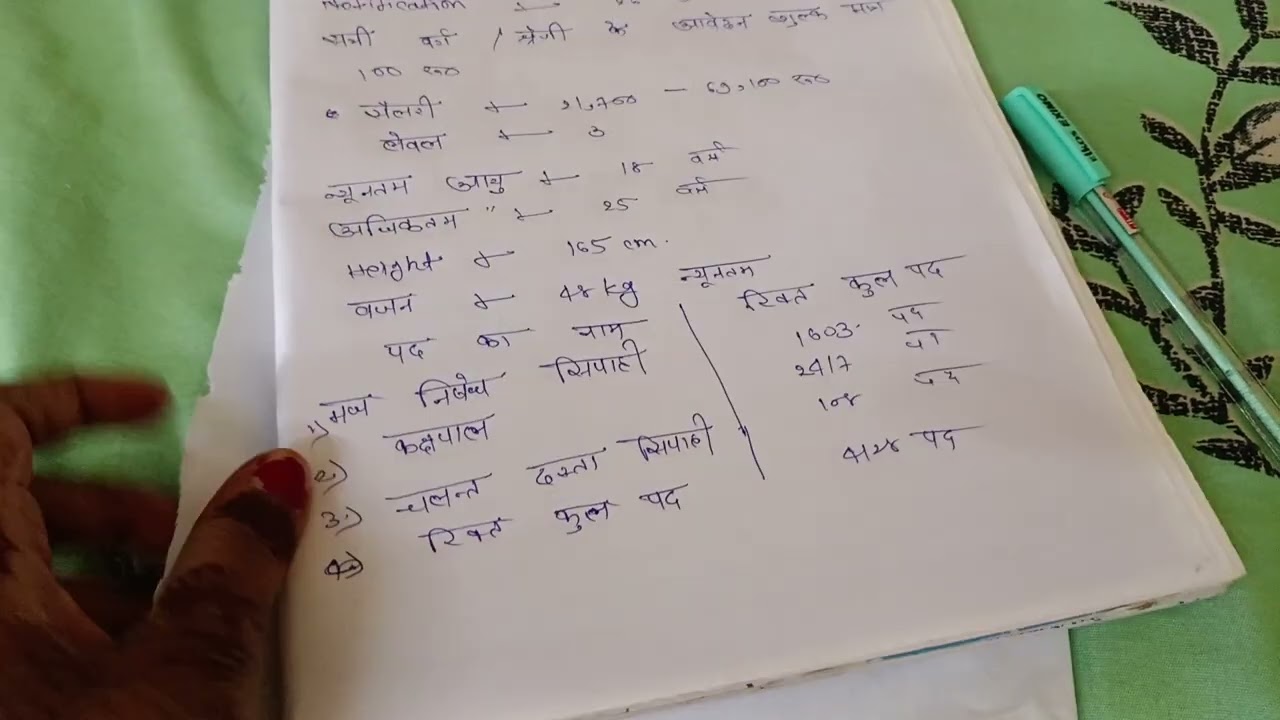 Notification
सभी वर्ग / श्रेणी के आवेदन शुल्क मात्र
100 रू०
सैलरी → 21,700 – 69,100 रू०
लेवल → 3
न्यूनतम आयु → 18 वर्ष
अधिकतम " → 25 वर्ष
Height → 165 cm.
वजन → 48 kg न्यूनतम
पद का नाम
रिक्त कुल पद
1) मद्य निषेध सिपाही
1603 पद
2) कक्षपाल
2417
3.) चलन्त दस्ता सिपाही
108
रिक्त कुल पद
4128 पद